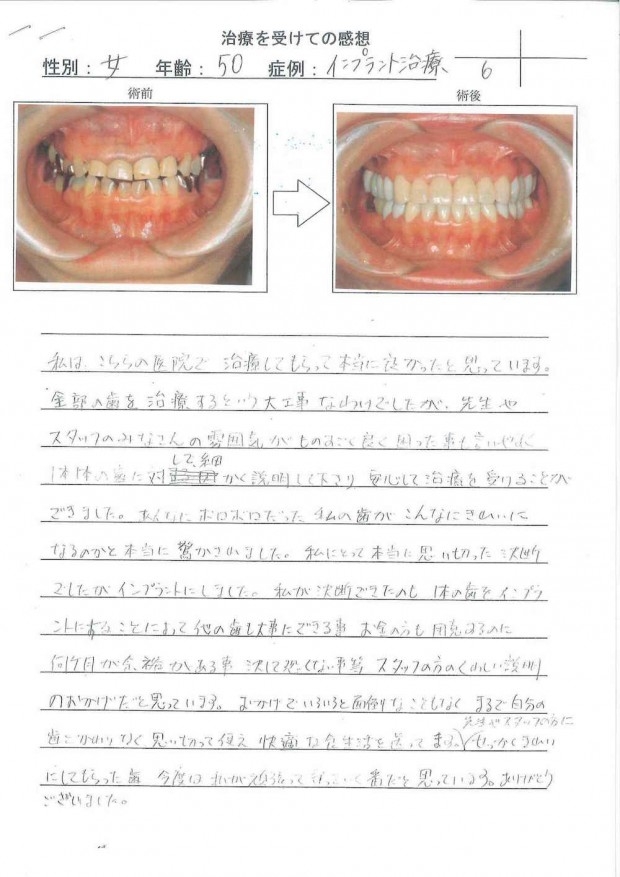 治療を受けての感想
性別：女 年齢：50 症例：インプラント治療 6
術前 術後
私は、こちらの医院で 治療してもらって本当に良かったと思っています。
全部の歯を治療するという大工事なわけでしたが、先生や
スタッフのみなさんの雰囲気がものすごく良く困った事も言いやすく
1本1本の歯に対して、細かく説明して下さり 安心して治療を受けることが
できました。あんなにボロボロだった私の歯がこんなにきれいに
なるのかと本当に驚かされました。私にとって本当に思い切った決断
でしたがインプラントにしました。私が決断できたのも 1本の歯をインプラ
ントにすることによって他の歯も大事にできる事 お金の方も用意するのに
何ケ月か余裕がある事 決して恐くない事等 スタッフの方のくわしい説明
のおかげだと思っています。おかげでいろいろと面倒なこともなく まるで自分の
歯とかわりなく思い切って使え 快適な食生活を送ってます。先生やスタッフの方に せっかくきれい
にしてもらった歯 今度は私が頑張って いく番だと思っています。ありがとう
ございました。